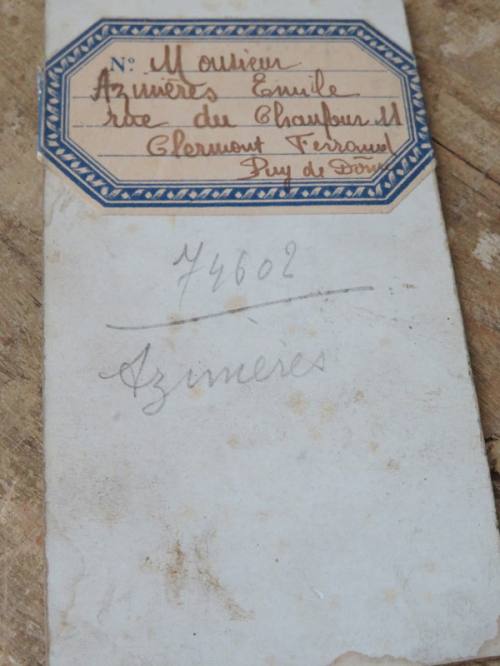 N° Monsieur
Azimères Emile
rue du Chaufour 11
Clermont Ferrand
Puy de Dôme
74602
Azimères